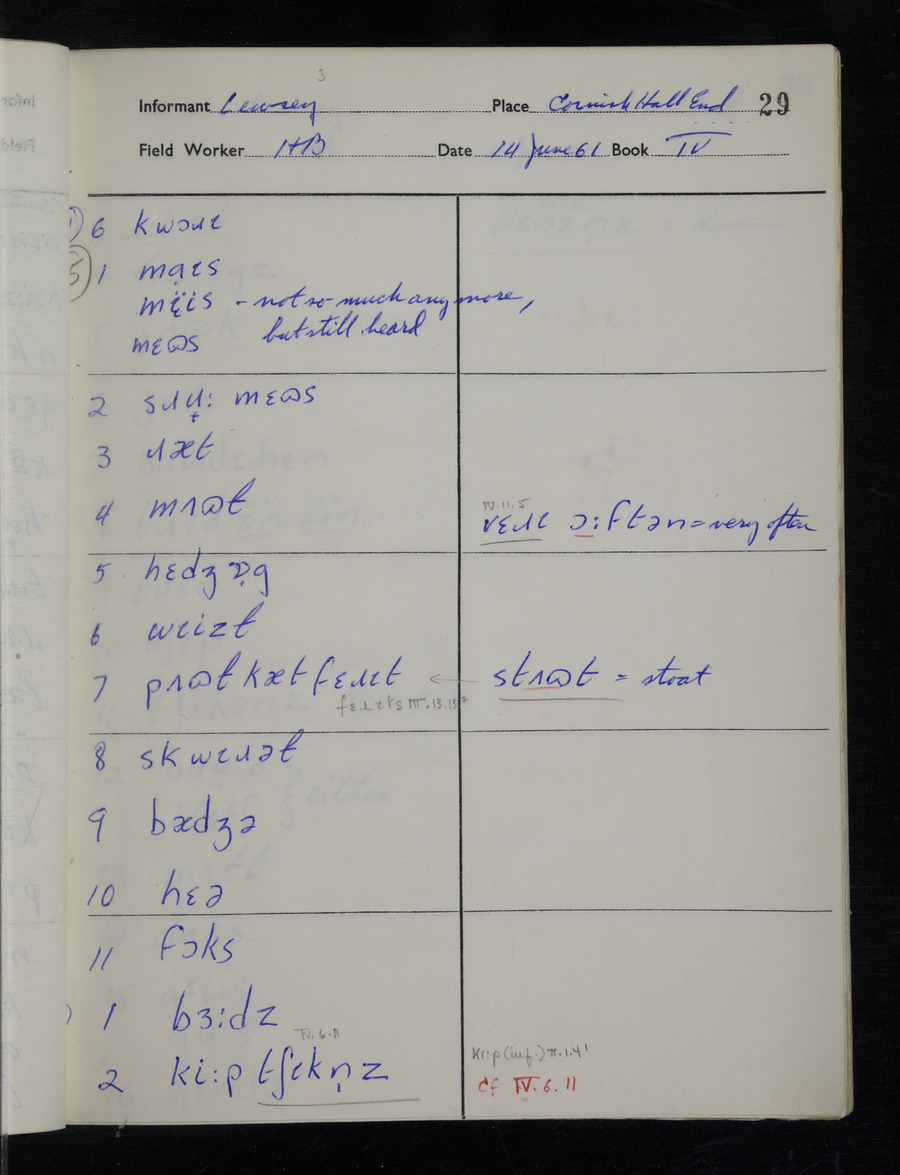 3
Informant Lewsey Place Cornish Hall End 29
Field Worker HB Date 14 June 61 Book IV
6 kwɔɹɪ
5) 1 maɪs
mɛ̈ïs - not so much any more,
mɛʊs but still heard
2 sɹʉ̟: mɛʊs
3 ɹæt
4 mʌʊt
IV.11.5
vɛɹɪ ɔ:ftən = very often
5 hɛdʒɒ̣g
6 wɪizɫ
7 pʌʊɫkætfɛɹɪt ← stʌʊt = stoat
fɛɹɪts III.13.13²
8 skwɪɹəɫ
9 bædʒə
10 hɛə
11 fɔks
1 bɜ:dz
IV.6.11
2 ki:p tʃɪkṇz
ki:p (inf.) III.1.4¹
cf IV.6.11